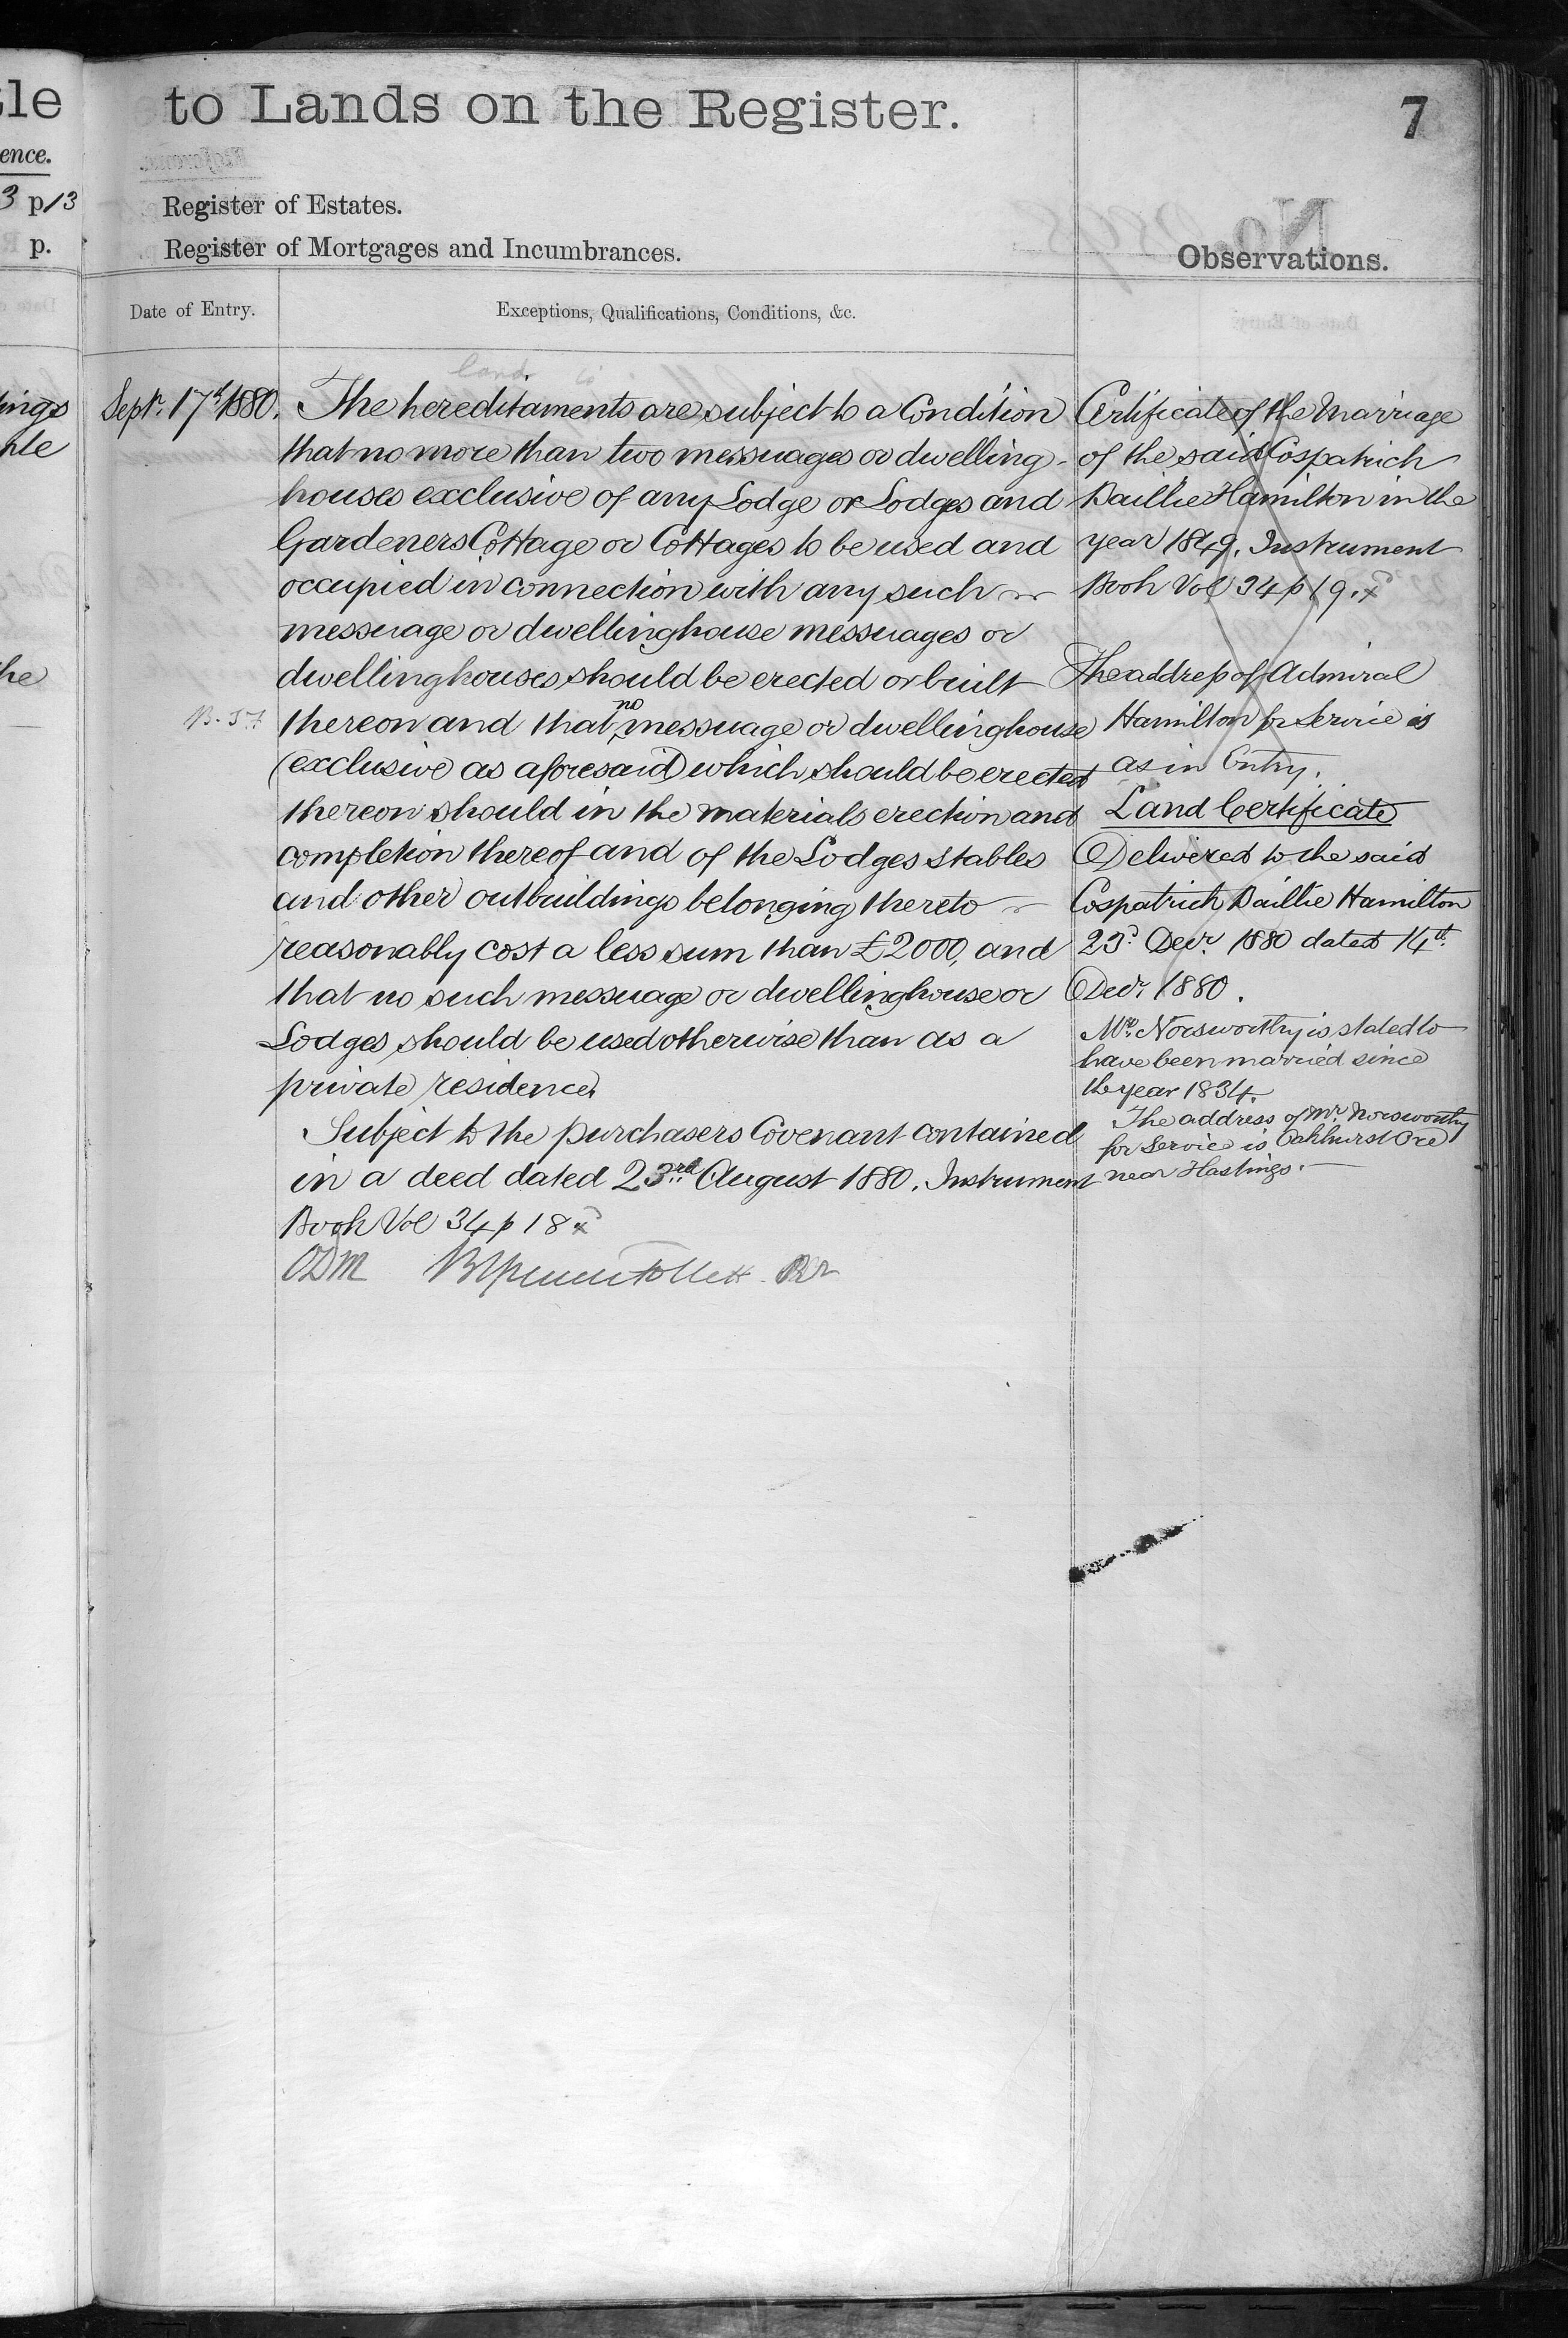 tle
ence.
3 p/3
p.
ings
he
to Lands on the Register.
7
Register of Estates.
Register of Mortgages and Incumbrances.
Observations.
Date of Entry.
Exceptions, Qualifications, Conditions, &c.
land
Septr. 17th 1880.
The hereditaments are subject to a Condition
that no more than two messuages or dwelling-
houses exclusive of any Lodge or Lodges and
Gardeners Cottage or Cottages to be used and
occupied in connection with any such
messuage or dwellinghouse messuages or
dwellinghouses should be erected or built
thereon and that no messuage or dwellinghouse
(exclusive as aforesaid) which should be erected
thereon should in the materials erection and
completion thereof and of the Lodges stables
and other outbuildings belonging thereto
reasonably cost a less sum than £2000, and
that no such messuage or dwellinghouse or
Lodges should be used otherwise than as a
private residence.
Subject to the purchasers Covenant contained
in a deed dated 23rd. August 1880. Instrument
Book Vol 34 p 18 x
ODM
Certificate of the Marriage
of the said Cospatrick
Baillie Hamilton in the
year 1849. Instrument
Book Vol 34 p 19. x
The address of Admiral
Hamilton for Service is
as in Entry.
Land Certificate
Delivered to the said
Cospatrick Baillie Hamilton
23d. Decr. 1880 dated 14th.
Decr. 1880.
Mr. Norsworthy is stated to
have been married since
the year 1834.
The address of Mr. Norsworthy
for Service is Oakhurst Ore
near Hastings.